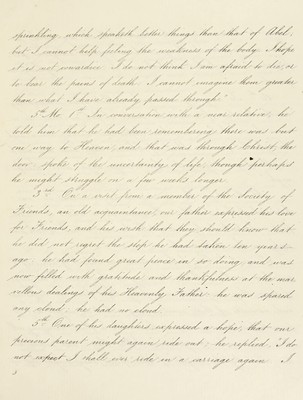 sprinkling which speaketh better things than that of Abel,
but I cannot help feeling the weakness of the body. I hope
it is not cowardice. I do not think I am afraid to die, or
to bear the pains of death. I cannot imagine them greater
than what I have already passed through."
5th Mo. 1st In conversation with a near relative, he
told him that he had been remembering there was but
one way to Heaven, and that was through Christ, the
door, spoke of the uncertainty of life, though perhaps
he might struggle on a few weeks longer.
3rd. On a visit from a member of the Society of
Friends, an old acquaintance, our father expressed his love
for Friends, and his wish that they should know that
he did not regret the step he had taken ten years
ago, he had found great peace in so doing, and was
now filled with gratitude and thankfulness at the mar
vellous dealings of his Heavenly Father he was spared
any cloud, he had no cloud.
5th One of his daughters expressed a hope that our
precious parent might again ride out he replied, I do
not expect I shall ever ride in a carriage again. I